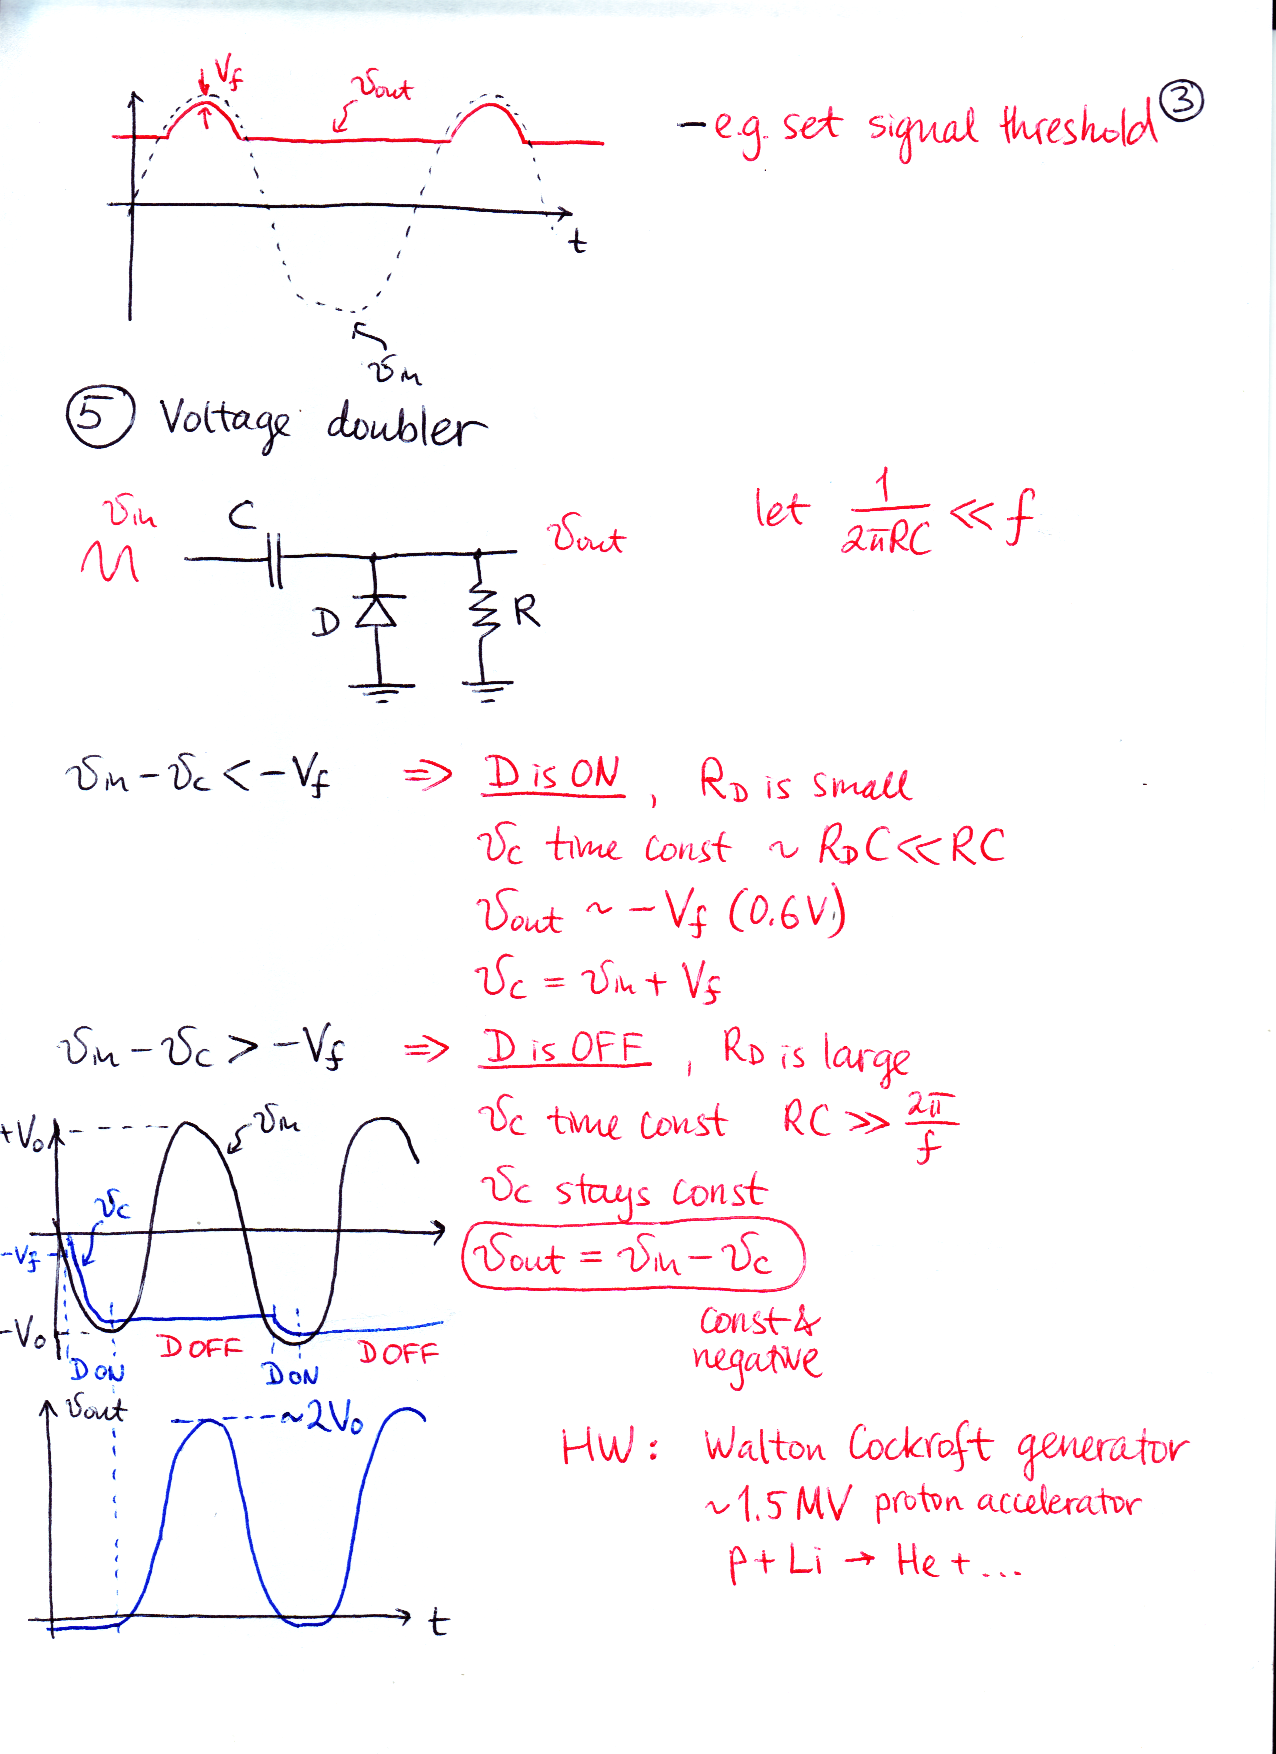 V_f
v_out
- e.g. set signal threshold
③
t
v_in
⑤ Voltage doubler
v_in
C
v_out
let 1/(2πRC) ≪ f
D
R
v_in - v_c < -V_f ⇒ D is ON, R_D is small
v_c time const ~ R_D C ≪ RC
v_out ~ -V_f (0.6V)
v_c = v_in + V_f
v_in - v_c > -V_f ⇒ D is OFF, R_D is large
v_c time const RC ≫ 2π/f
v_c stays const
v_out = v_in - v_c
const &
negative
+V_o
v_in
v_c
-V_f
-V_o
D ON
D OFF
D ON
D OFF
v_out
~2V_o
t
HW: Walton Cockroft generator
~1.5 MV proton accelerator
p + Li → He + ...